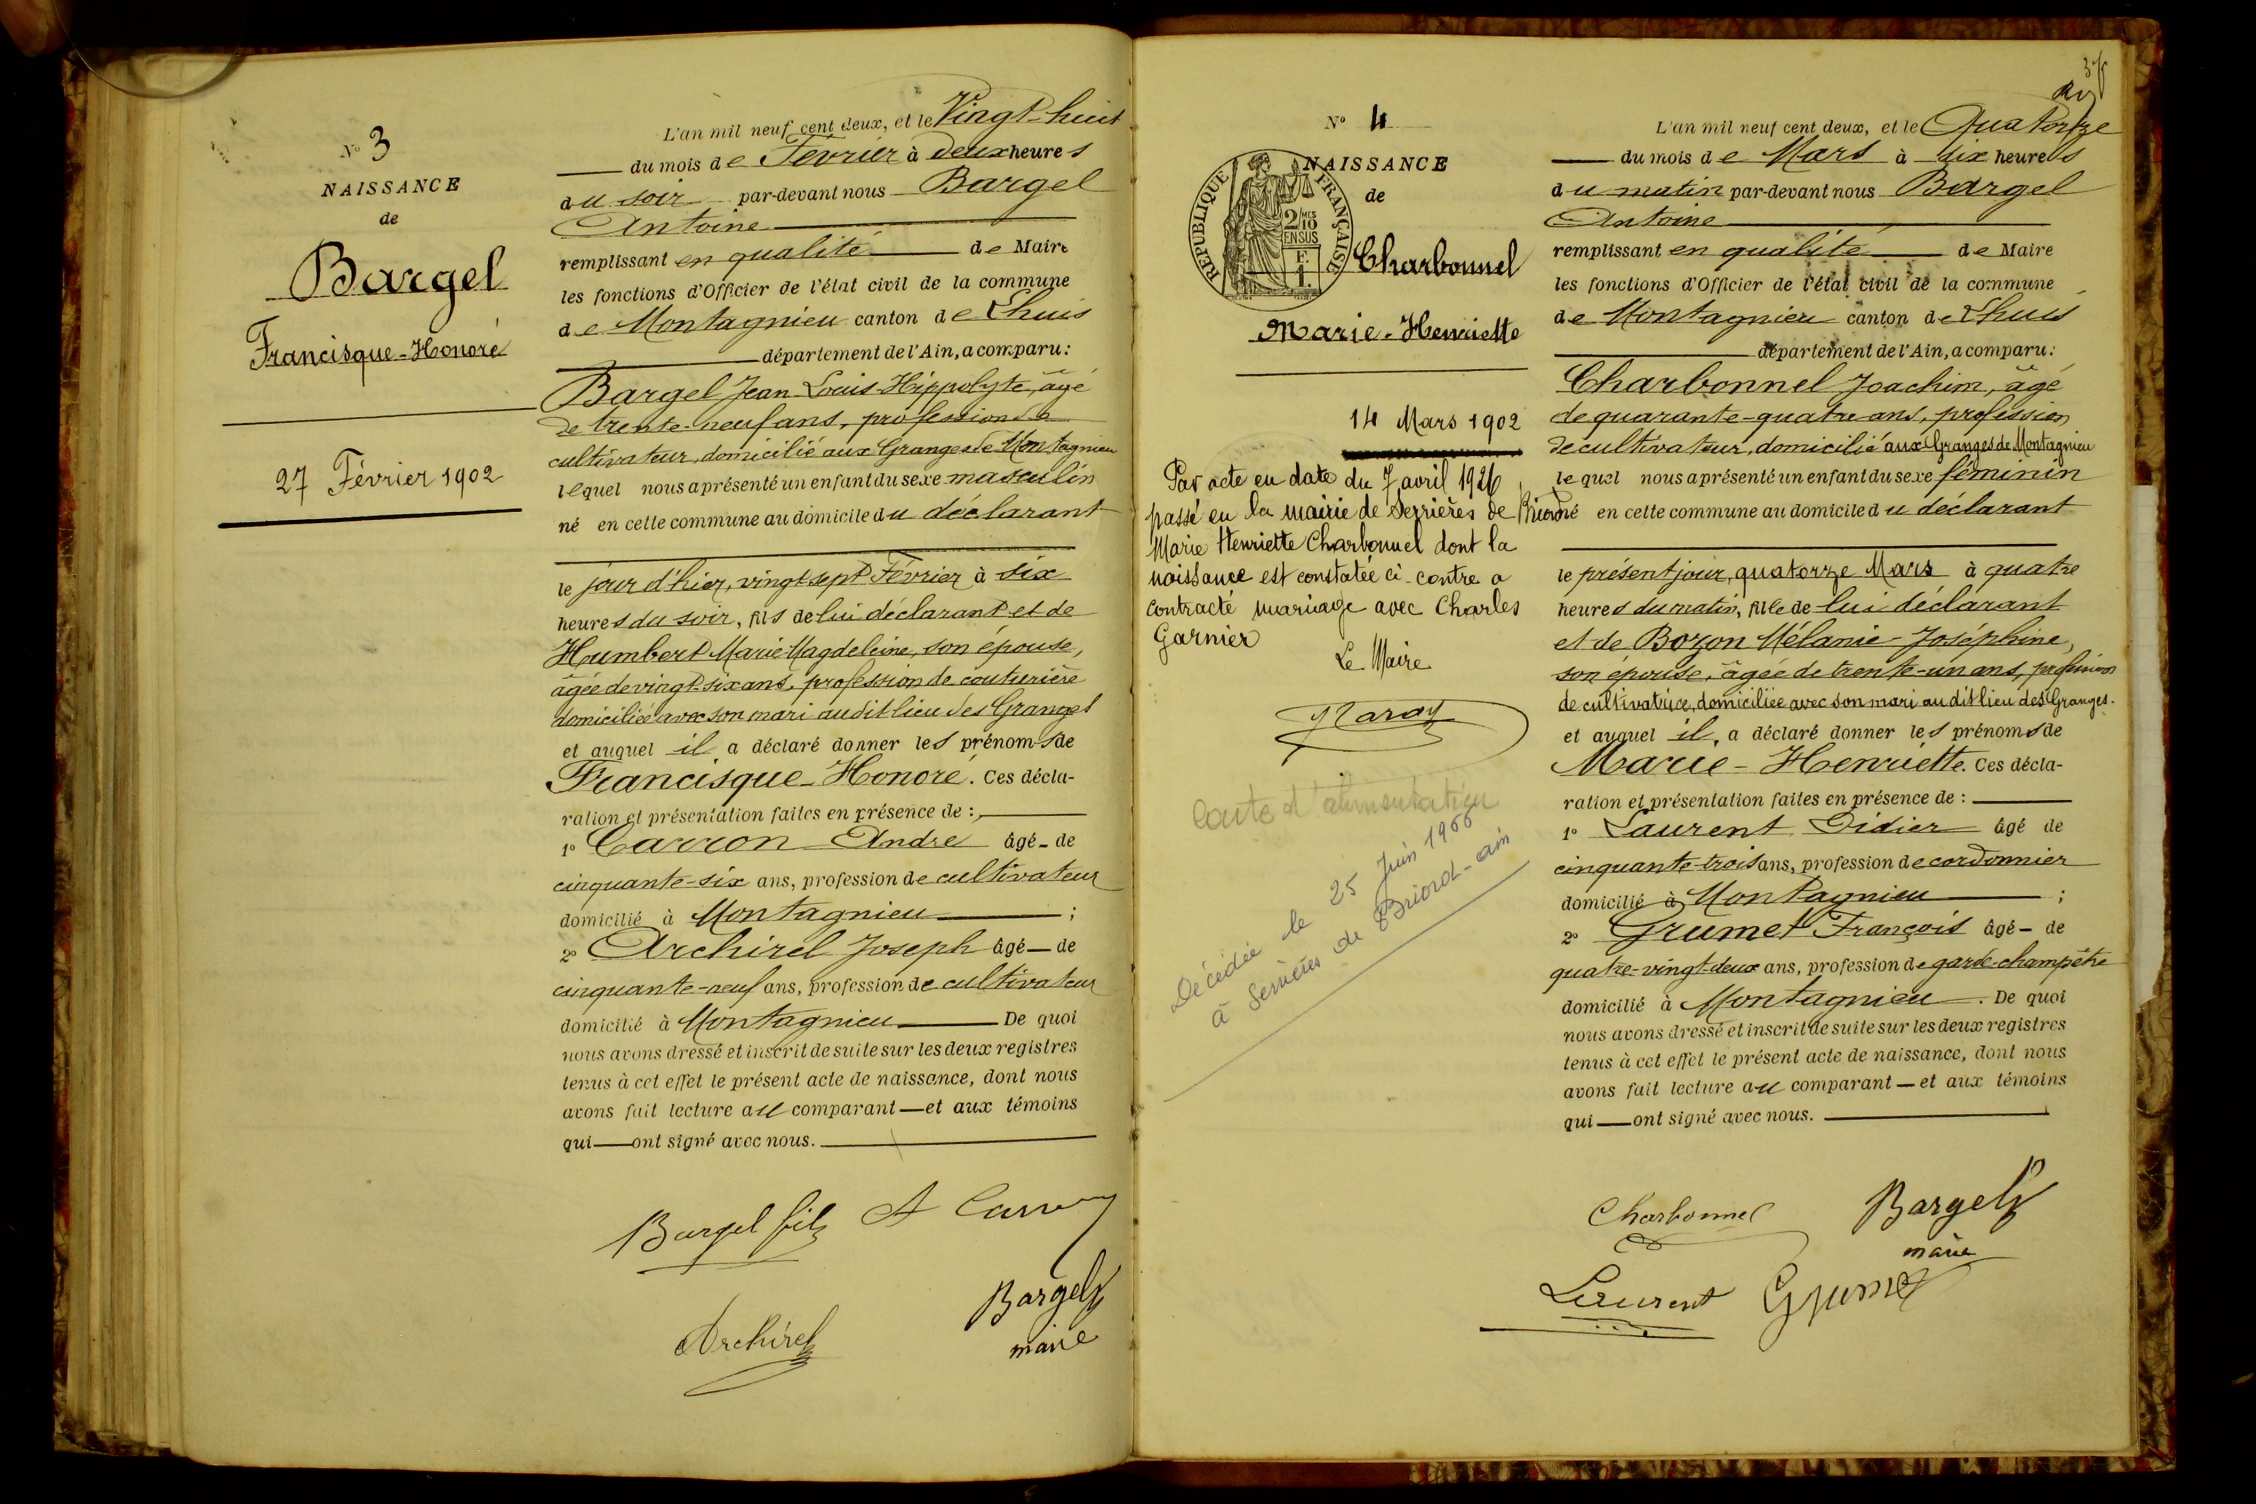 N° 3
NAISSANCE
de
Bargel
Francisque-Honoré
27 Février 1902
L'an mil neuf cent deux, et le Vingt-huit
du mois de Février à deux heures
du soir par-devant nous Bargel
Antoine
remplissant en qualité de Maire
les fonctions d'Officier de l'état civil de la commune
de Montagnieu canton de Lhuis
département de l'Ain, a comparu:
Bargel Jean Louis-Hippolyte, âgé
de trente-neuf ans, profession de
cultivateur, domicilié aux Granges de Montagnieu
lequel nous a présenté un enfant du sexe masculin
né en cette commune au domicile du déclarant
le jour d'hier, vingt sept Février à six
heures du soir, fils de lui déclarant et de
Humbert Marie-Magdeleine, son épouse,
âgée de vingt-six ans, profession de couturière
domiciliée avec son mari au dit lieu des Granges
et auquel il a déclaré donner les prénoms de
Francisque-Honoré. Ces décla-
ration et présentation faites en présence de :
1° Carron André âgé de
cinquante-six ans, profession de cultivateur
domicilié à Montagnieu ;
2° Archirel Joseph âgé de
cinquante-neuf ans, profession de cultivateur
domicilié à Montagnieu De quoi
nous avons dressé et inscrit de suite sur les deux registres
tenus à cet effet le présent acte de naissance, dont nous
avons fait lecture au comparant et aux témoins
qui ont signé avec nous.
Bargel fils A Carron
Bargel
maire
Archirel
N° 4
NAISSANCE
de
RÉPUBLIQUE FRANÇAISE
2 MES
10
EN SUS
F.
1.
Charbonnel
Marie-Henriette
14 Mars 1902
Par acte en date du 7 avril 1926,
passé en la mairie de Serrières de Briord
Marie Henriette Charbonnel dont la
naissance est constatée ci-contre a
contracté mariage avec Charles
Garnier
Le Maire
Carte d'alimentation
Décédée le 25 Juin 1966
à Serrières de Briord-ain
L'an mil neuf cent deux, et le Quatorze
du mois de Mars à dix heures
du matin par-devant nous Bargel
Antoine
remplissant en qualité de Maire
les fonctions d'Officier de l'état civil de la commune
de Montagnieu canton de Lhuis
département de l'Ain, a comparu:
Charbonnel Joachim, âgé
de quarante-quatre ans, profession
de cultivateur, domicilié aux Granges de Montagnieu
lequel nous a présenté un enfant du sexe féminin
né en cette commune au domicile du déclarant
le présent jour, quatorze Mars à quatre
heures du matin, fille de lui déclarant
et de Bozon Mélanie-Joséphine,
son épouse, âgée de trente-un ans, profession
de cultivatrice, domiciliée avec son mari au dit lieu des Granges.
et auquel il a déclaré donner les prénoms de
Marie-Henriette. Ces décla-
ration et présentation faites en présence de :
1° Laurent Didier âgé de
cinquante-trois ans, profession de cordonnier
domicilié à Montagnieu ;
2° Grumet François âgé de
quatre-vingt-deux ans, profession de garde-champêtre
domicilié à Montagnieu. De quoi
nous avons dressé et inscrit de suite sur les deux registres
tenus à cet effet le présent acte de naissance, dont nous
avons fait lecture au comparant et aux témoins
qui ont signé avec nous.
Charbonnel Bargel
maire
Laurent Grumet